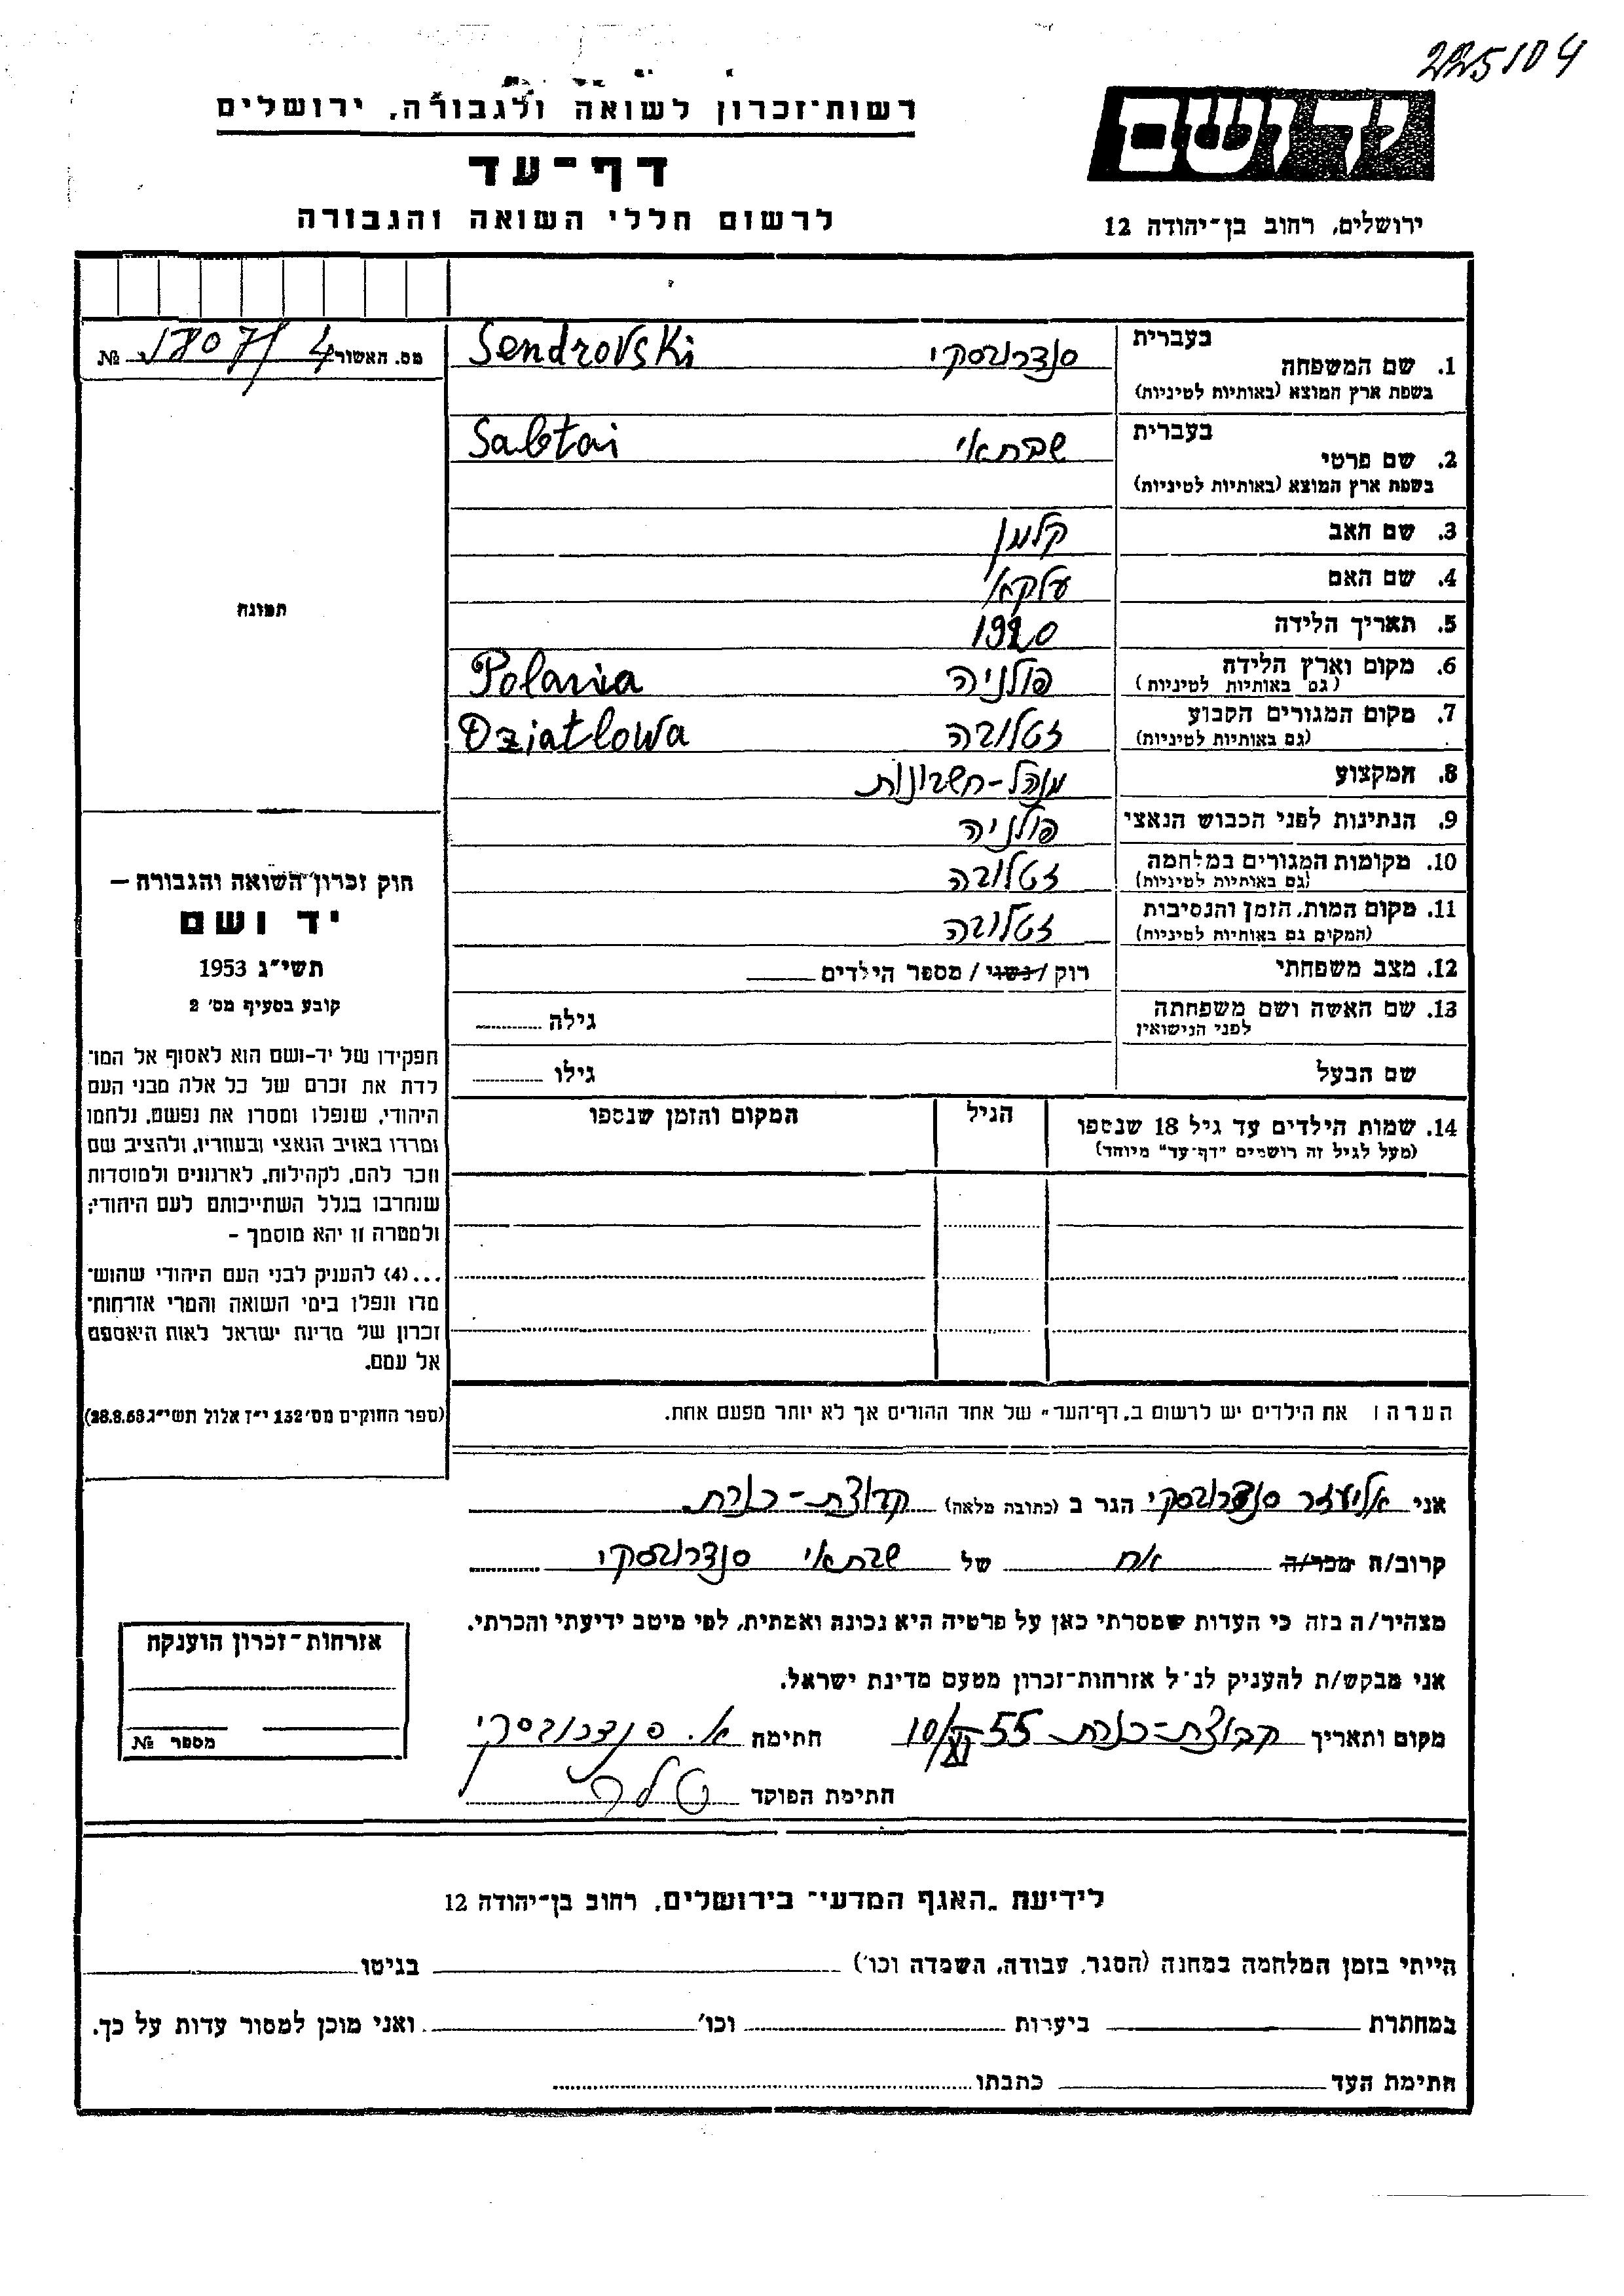 225104
רשות־זכרון לשואה ולגבורה, ירושלים
יד ושם
דף־עד
לרשום חללי השואה והגבורה
ירושלים, רחוב בן־יהודה 12
מס. האשור № 17807/4
1. שם המשפחה בעברית סנדרובסקי Sendrovski
בשפת ארץ המוצא (באותיות לטיניות)
2. שם פרטי בעברית שבתאי Sabtai
בשפת ארץ המוצא (באותיות לטיניות)
3. שם האב קלמן
4. שם האם
5. תאריך הלידה 1920
6. מקום וארץ הלידה פולניה Polania
(גם באותיות לטיניות)
7. מקום המגורים הקבוע זטלובה Dziatlowa
(גם באותיות לטיניות)
8. המקצוע מנהל-חשבונות
9. הנתינות לפני הכבוש הנאצי פולניה
10. מקומות המגורים במלחמה זטלובה
(גם באותיות לטיניות)
11. מקום המות, הזמן והנסיבות זטלובה
(המקום גם באותיות לטיניות)
12. מצב משפחתי רוק / נשוי / מספר הילדים
13. שם האשה ושם משפחתה גילה
לפני הנישואין
שם הבעל גילו
14. שמות הילדים עד גיל 18 שנספו הגיל המקום והזמן שנספו
(מעל לגיל זה רושמים "דף־עד" מיוחד)
הערה: את הילדים יש לרשום ב"דף־העד" של אחד ההורים אך לא יותר מפעם אחת.
תמונה
חוק זכרון השואה והגבורה —
יד ושם
תשי"ג 1953
קובע בסעיף מס' 2
תפקידו של יד-ושם הוא לאסוף אל המו־
לדת את זכרם של כל אלה מבני העם
היהודי, שנפלו ומסרו את נפשם, נלחמו
ומרדו באויב הנאצי ובעוזריו, ולהציב שם
וזכר להם, לקהילות, לארגונים ולמוסדות
שנחרבו בגלל השתייכותם לעם היהודי;
ולמטרה זו יהא מוסמך -
...(4) להעניק לבני העם היהודי שהוש־
מדו ונפלו בימי השואה והמרי אזרחות־
זכרון של מדינת ישראל לאות היאספם
אל עמם.
(ספר החוקים מס' 132 י"ז אלול תשי"ג 28.8.53)
אני אליעזר סנדרובסקי הגר ב (כתובה מלאה) קבוצת-כנרת
קרוב/ה מכר/ה אח של שבתאי סנדרובסקי
מצהיר/ה בזה כי העדות שמסרתי כאן על פרטיה היא נכונה ואמתית, לפי מיטב ידיעתי והכרתי.
אני מבקש/ת להעניק לנ"ל אזרחות־זכרון מטעם מדינת ישראל.
מקום ותאריך קבוצת-כנרת 10/XI 55 חתימה א. סנדרובסקי
חתימת הפוקד
אזרחות־זכרון הוענקה
מספר №
לידיעת "האגף המדעי" בירושלים, רחוב בן־יהודה 12
הייתי בזמן המלחמה במחנה (הסגר, עבודה, השמדה וכו') בגיטו
במחתרת ביערות וכו' ואני מוכן למסור עדות על כך.
חתימת העד כתבתו